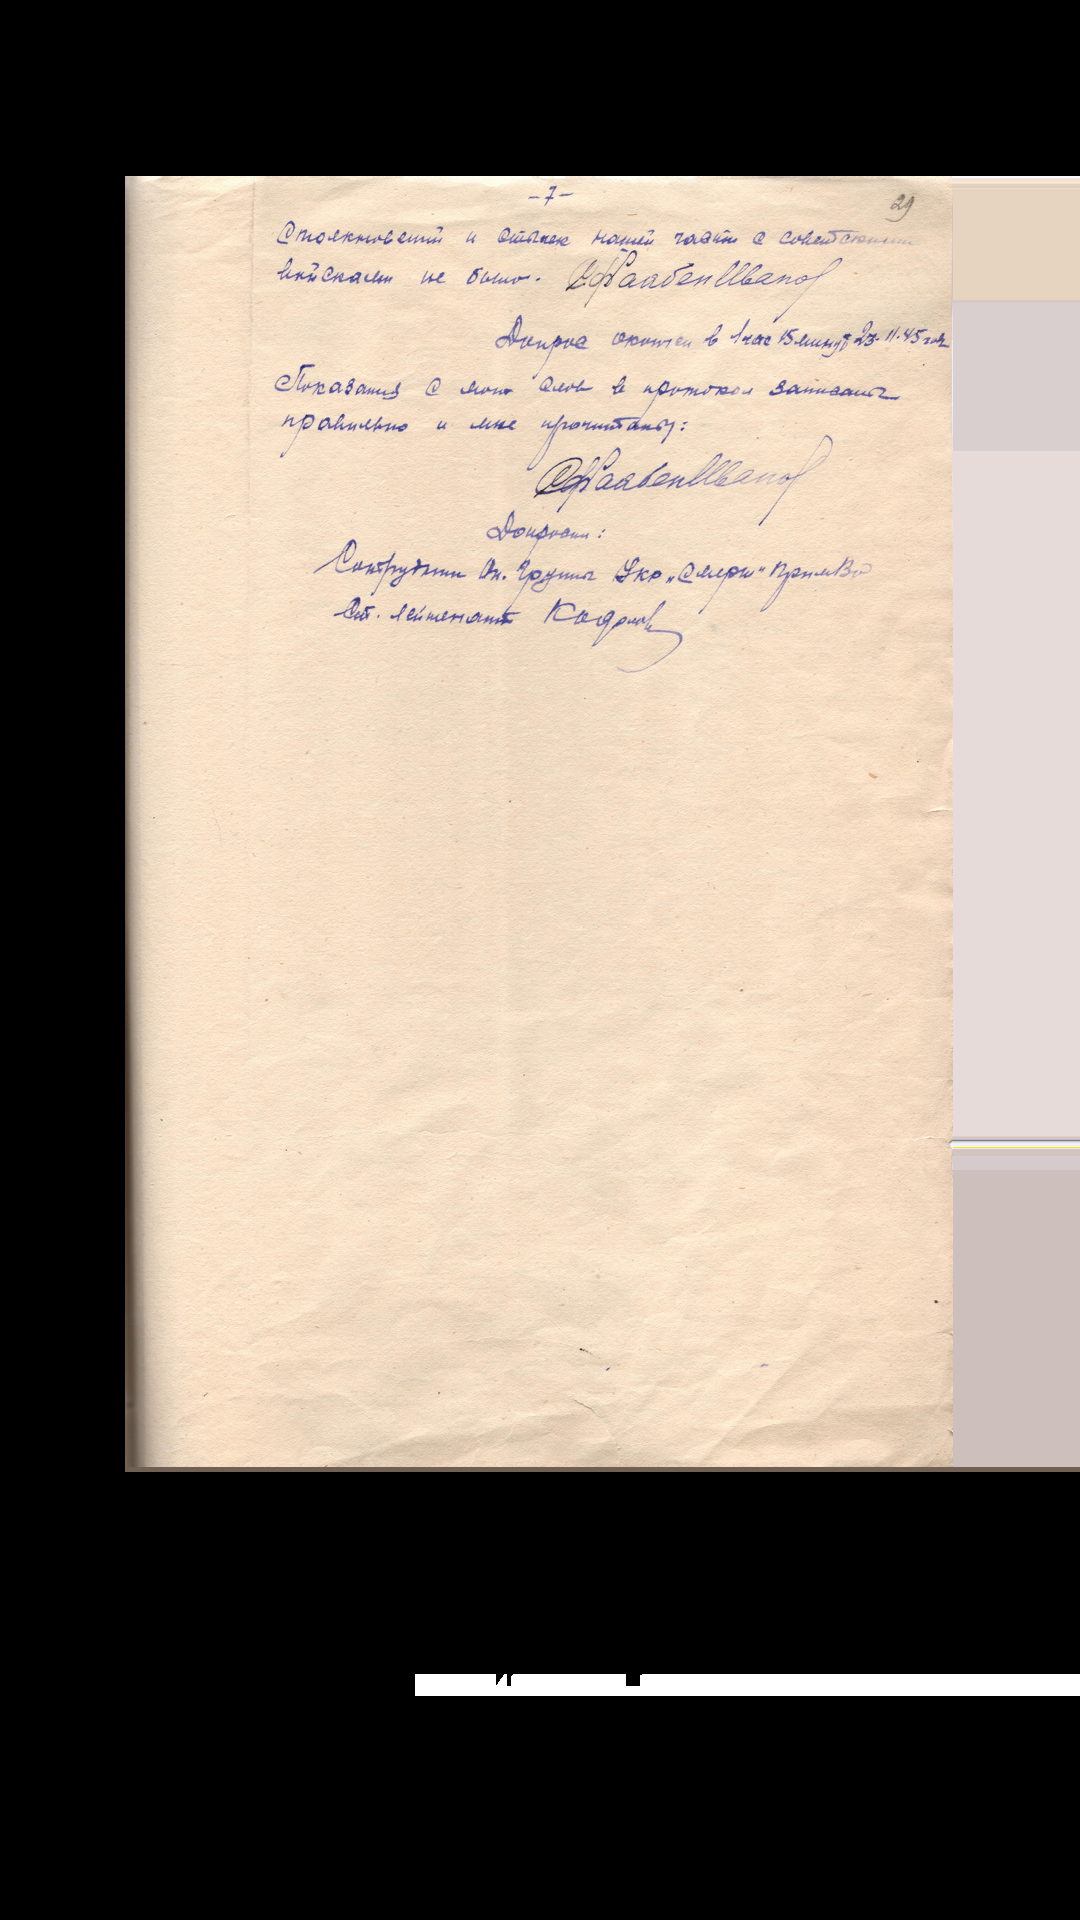 -7-
29
Столкновений и стычек нашей части с советскими
войсками не было. СФРаабенИванов
Допрос окончен в 1 час 15 минут 23.11.45 года
Показания с моих слов в протокол записаны
правильно и мне прочитаны:
СФРаабенИванов
Допросил:
Сотрудник Оп. Группы Укр „Смерш“ ПримВО
Ст. лейтенант